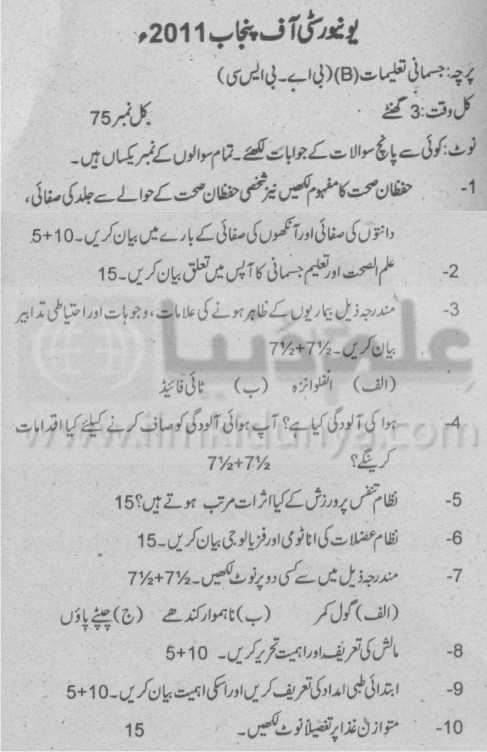 یونیورسٹی آف پنجاب 2011ء
پرچہ: جسمانی تعلیمات (B) (بی اے۔ بی ایس سی)
کل وقت: 3 گھنٹے کل نمبر 75
نوٹ: کوئی سے پانچ سوالات کے جوابات لکھئے۔ تمام سوالوں کے نمبر یکساں ہیں۔
1- حفظان صحت کا مفہوم لکھیں نیز شخصی حفظان صحت کے حوالے سے جلد کی صفائی،
دانتوں کی صفائی اور آنکھوں کی صفائی کے بارے میں بیان کریں۔ 10+5
2- علم الصحت اور تعلیم جسمانی کا آپس میں تعلق بیان کریں۔ 15
3- مندرجہ ذیل بیماریوں کے ظاہر ہونے کی علامات، وجوہات اور احتیاطی تدابیر
بیان کریں۔ 7½+7½
(الف) انفلوائنزہ (ب) ٹائی فائیڈ
4- ہوا کی آلودگی کیا ہے؟ آپ ہوائی آلودگی کو صاف کرنے کیلئے کیا اقدامات
کرینگے؟ 7½+7½
5- نظام تنفس پر ورزش کے کیا اثرات مرتب ہوتے ہیں؟ 15
6- نظام عضلات کی اناٹومی اور فزیالوجی بیان کریں۔ 15
7- مندرجہ ذیل میں سے کسی دو پر نوٹ لکھیں۔ 7½+7½
(الف) گول کمر (ب) ناہموار کندھے (ج) چپٹے پاؤں
8- مالش کی تعریف اور اہمیت تحریر کریں۔ 10+5
9- ابتدائی طبی امداد کی تعریف کریں اور اسکی اہمیت بیان کریں۔ 10+5
10- متوازن غذا پر تفصیلاً نوٹ لکھیں۔ 15
علم کی دنیا
www.ilmkidunya.com